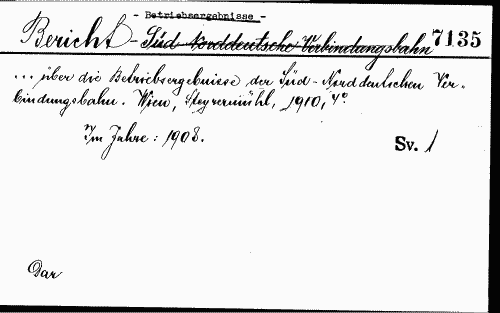 - Betriebsergebnisse -
Bericht - Süd-Norddeutsche Verbindungsbahn 7135
... über die Betriebsergebnisse der Süd-Norddeutschen Ver-
bindungsbahn. Wien, Steyrermühl, 1910, 4°.
Im Jahre: 1908.
Sv. 1
Dar